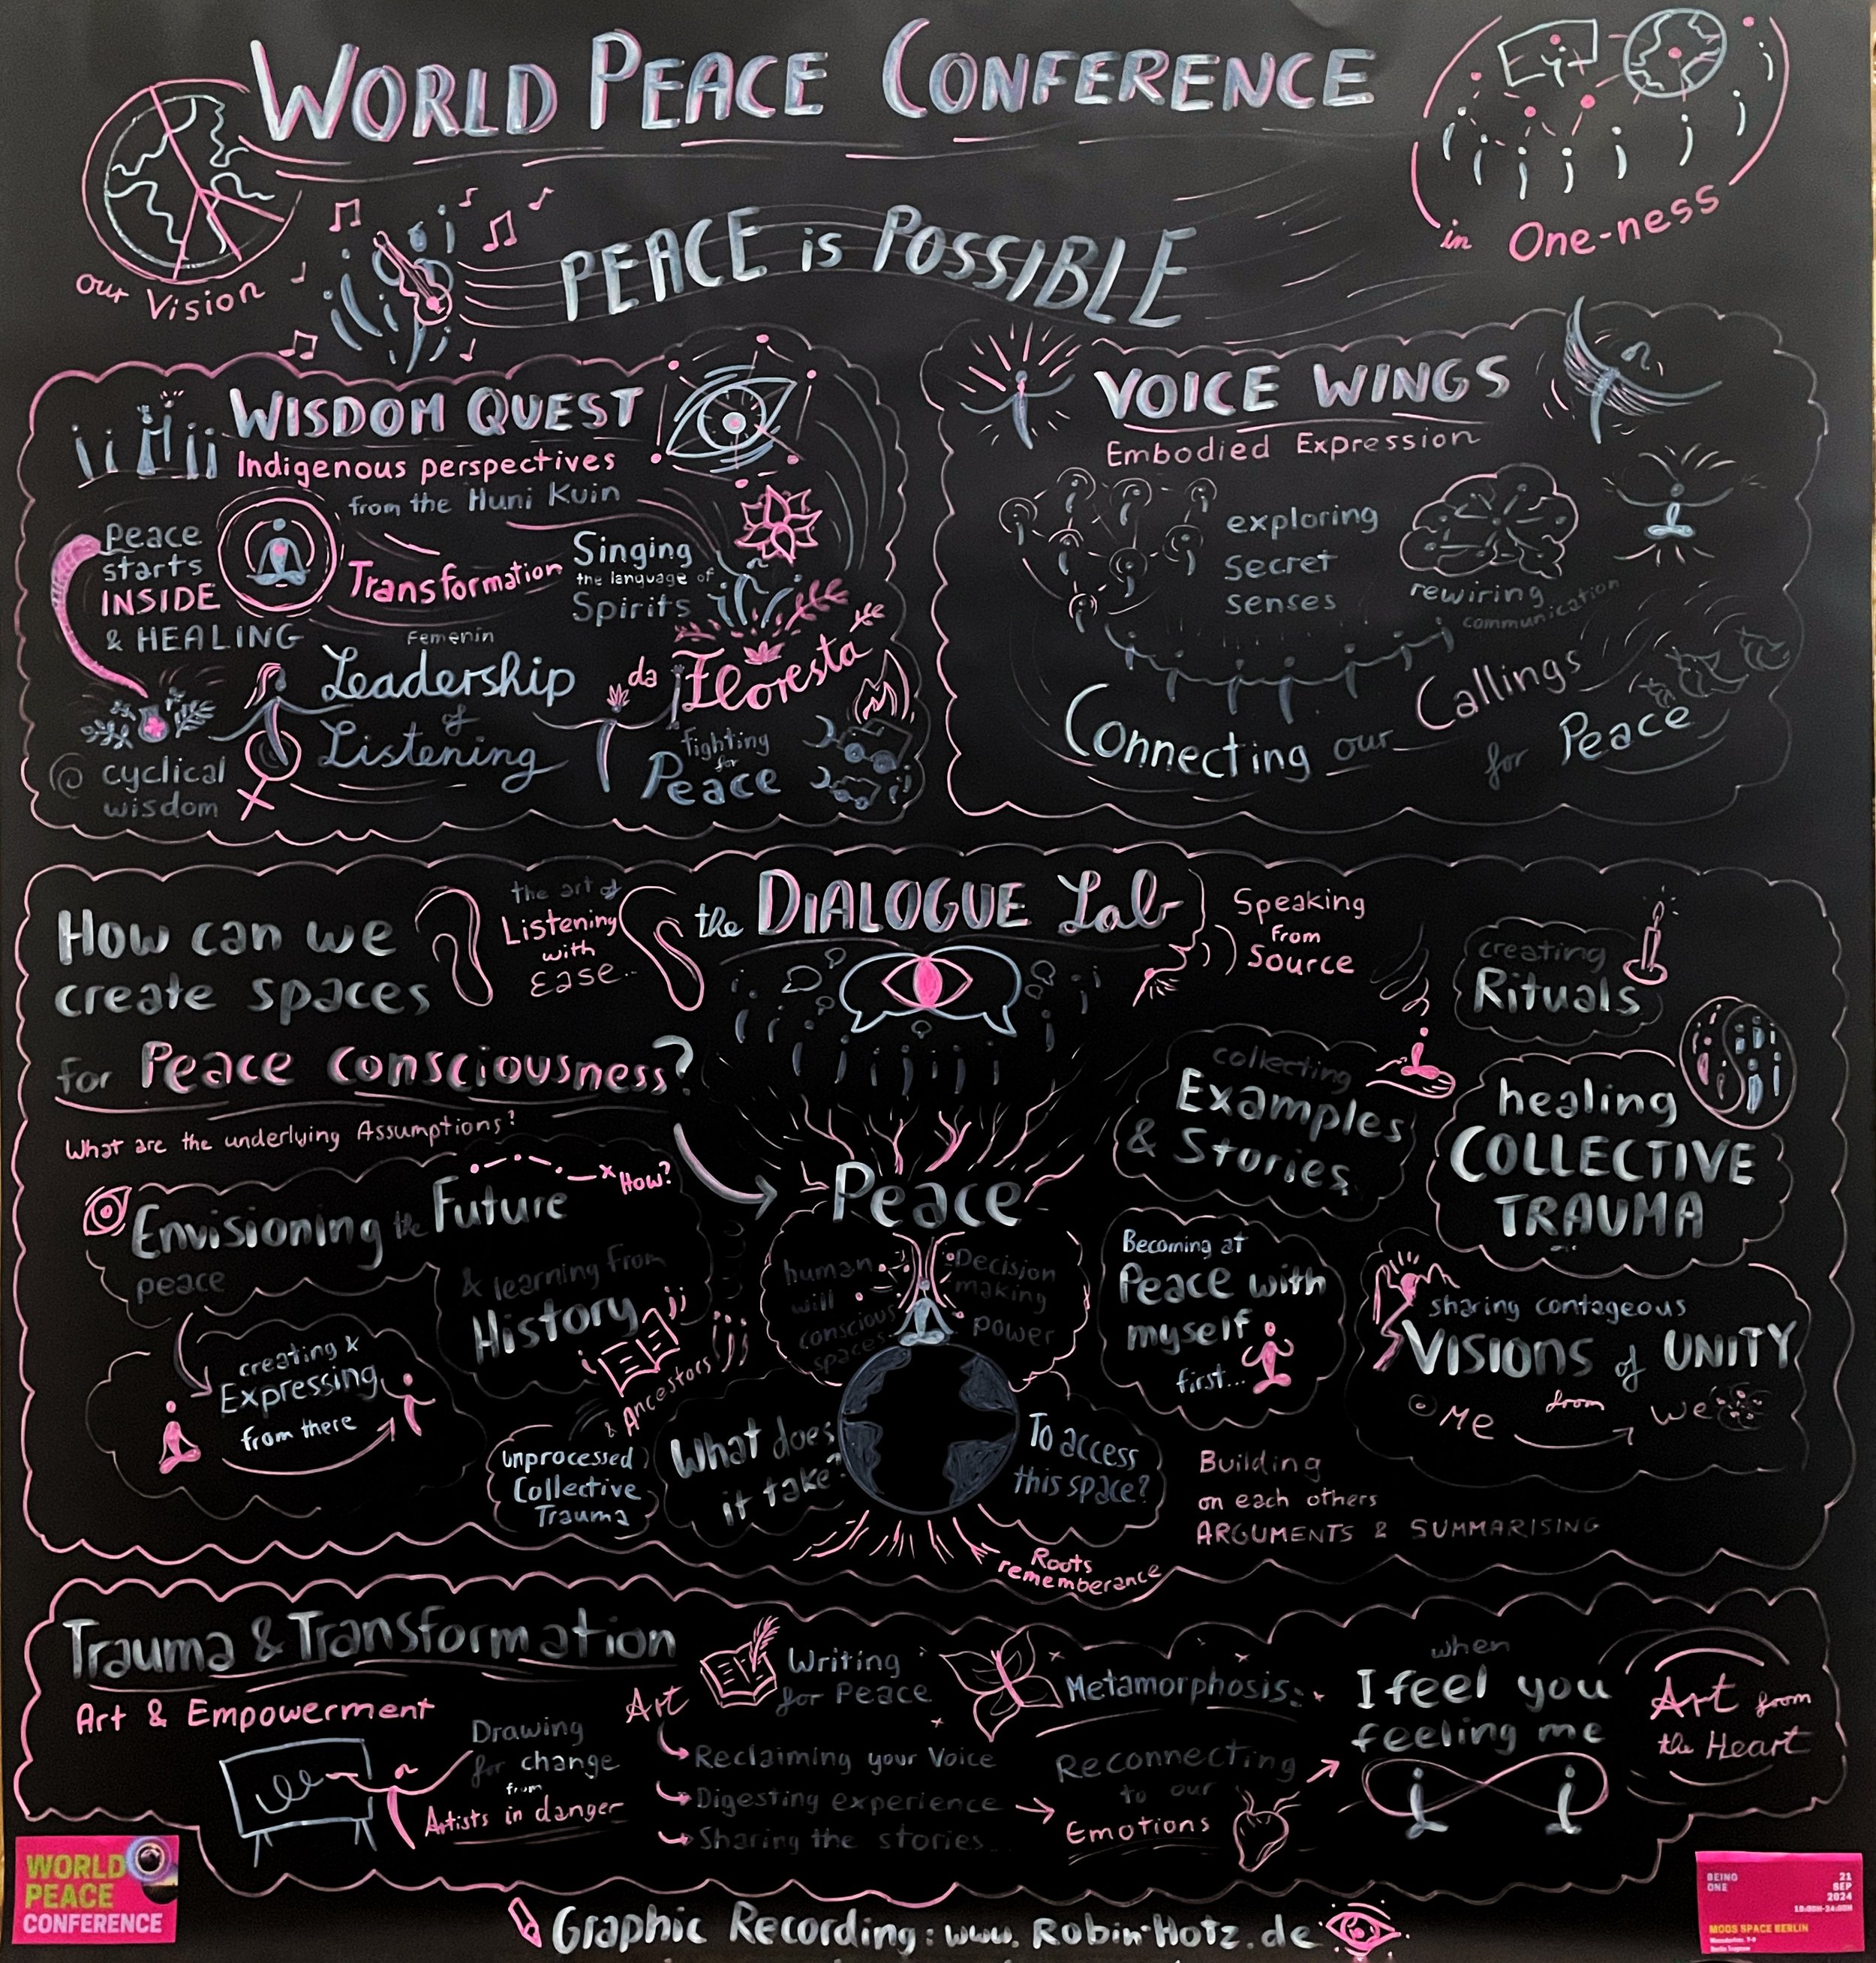 WORLD PEACE CONFERENCE
our Vision
in One-ness
PEACE is POSSIBLE
WISDOM QUEST
Indigenous perspectives
from the Huni Kuin
Peace
starts
INSIDE
& HEALING
Transformation
Singing
the language of
Spirits
Femenin
Leadership
of
Listening
da Floresta
fighting
for
Peace
cyclical
wisdom
VOICE WINGS
Embodied Expression
exploring
secret
senses
rewiring
communication
Connecting our Callings
for Peace
How can we
create spaces
for Peace Consciousness?
What are the underlying Assumptions?
the art of
Listening
with
Ease..
the DIALOGUE Lab
Speaking
From
Source
creating
Rituals
collecting
Examples
& Stories
healing
COLLECTIVE
TRAUMA
Envisioning the Future
peace
How?
& learning from
History
& Ancestors
creating &
Expressing
from there
unprocessed
Collective
Trauma
Peace
human
will
conscious
spaces
Decision
making
power
What does
it take?
To access
this space?
Roots
rememberance
Becoming at
Peace with
myself
first...
sharing contageous
VISIONS of UNITY
Me from we
Building
on each others
ARGUMENTS & SUMMARISING
Trauma & Transformation
Art & Empowerment
Drawing
for change
from
Artists in danger
Art
Writing
for Peace
Reclaiming your Voice
Digesting experience
Sharing the stories..
Metamorphosis:
Reconnecting
to our
Emotions
when
I feel you
feeling me
Art from
the Heart
WORLD
PEACE
CONFERENCE
Graphic Recording: www.Robin-Hotz.de
BEING
ONE
21
SEP
2024
MOOS SPACE BERLIN